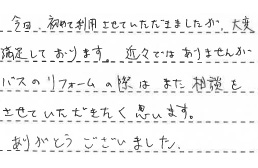 今日、初めて利用させていただきましたが、大変
満足しております。近々ではありませんが
バスのリフォームの際はまた相談を
させていただきたく思います。
ありがとうございました。